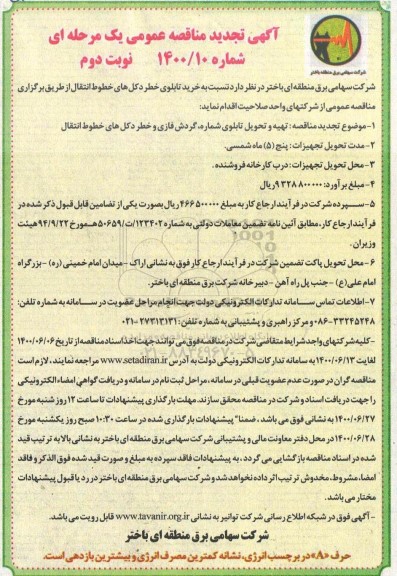 آگهی تجدید مناقصه عمومی یک مرحله ای
شماره ۱۴۰۰/۱۰ نوبت دوم
شرکت سهامی برق منطقه ای باختر
شرکت سهامی برق منطقه ای باختر در نظر دارد نسبت به خرید تابلوی خطر دکل های خطوط انتقال از طریق برگزاری
مناقصه عمومی از شرکتهای واحد صلاحیت اقدام نماید:
۱-موضوع تجدید مناقصه: تهیه و تحویل تابلوی شماره، گردش فازی و خطر دکل های خطوط انتقال
۲-مدت تحویل تجهیزات: پنج (۵) ماه شمسی.
۳-محل تحویل تجهیزات: درب کارخانه فروشنده.
۴-مبلغ برآورد: ۹۳۲۸۸۰۰۰۰۰ ریال
۵-سپرده شرکت در فرآیند ارجاع کار به مبلغ ۴۶۶۵۰۰۰۰۰ ریال بصورت یکی از تضامین قابل قبول ذکر شده در
فرآیند ارجاع کار، مطابق آئین نامه تضمین معاملات دولتی به شماره ۱۲۳۴۰۲/ت۵۰۶۵۹هـ مورخ ۹۴/۹/۲۲ هیئت
وزیران.
۶- محل تحویل پاکت تضمین شرکت در فرآیند ارجاع کار فوق به نشانی اراک - میدان امام خمینی (ره) - بزرگراه
امام علی (ع) - جنب پل راه آهن - دبیرخانه شرکت برق منطقه ای باختر.
۷- اطلاعات تماس سامانه تدارکات الکترونیکی دولت جهت انجام مراحل عضویت در سامانه به شماره تلفن:
۰۸۶-۳۳۲۴۵۲۴۸ و مرکز راهبری و پشتیبانی به شماره تلفن: ۲۷۳۱۳۱۳۱-۰۲۱
-کلیه شرکتهای واجد شرایط متقاضی شرکت در مناقصه فوق می توانند جهت اخذ اسناد مناقصه از تاریخ ۱۴۰۰/۰۶/۰۶
لغایت ۱۴۰۰/۰۶/۱۳ به سامانه تدارکات الکترونیکی دولت به آدرس www.setadiran.ir مراجعه نمایند، لازم است
مناقصه گران در صورت عدم عضویت قبلی در سامانه، مراحل ثبت نام در سامانه و دریافت گواهی امضاء الکترونیکی
را جهت دریافت اسناد و شرکت در مناقصه محقق سازند. مهلت بارگذاری پیشنهادات تا ساعت ۱۲ روز شنبه مورخ
۱۴۰۰/۰۶/۲۷ به نشانی فوق می باشد، ضمنا" پیشنهادات بارگذاری شده در ساعت ۱۰:۳۰ صبح روز یکشنبه مورخ
۱۴۰۰/۰۶/۲۸ در محل دفتر معاونت مالی و پشتیبانی شرکت سهامی برق منطقه ای باختر به نشانی بالا به ترتیب قید
شده در اسناد مناقصه بازگشایی می گردد. به پیشنهادات فاقد سپرده به مبلغ و صورت قید شده فوق الذکر و فاقد
امضا، مشروط، مخدوش ترتیب اثر داده نخواهد شد و شرکت سهامی برق منطقه ای باختر در رد یا قبول پیشنهادات
مختار می باشد.
-آگهی فوق در شبکه اطلاع رسانی شرکت توانیر به نشانی www.tavanir.org.ir قابل رویت می باشد.
شرکت سهامی برق منطقه ای باختر
حرف «A» در برچسب انرژی، نشانه کمترین مصرف انرژی و بیشترین بازدهی است.